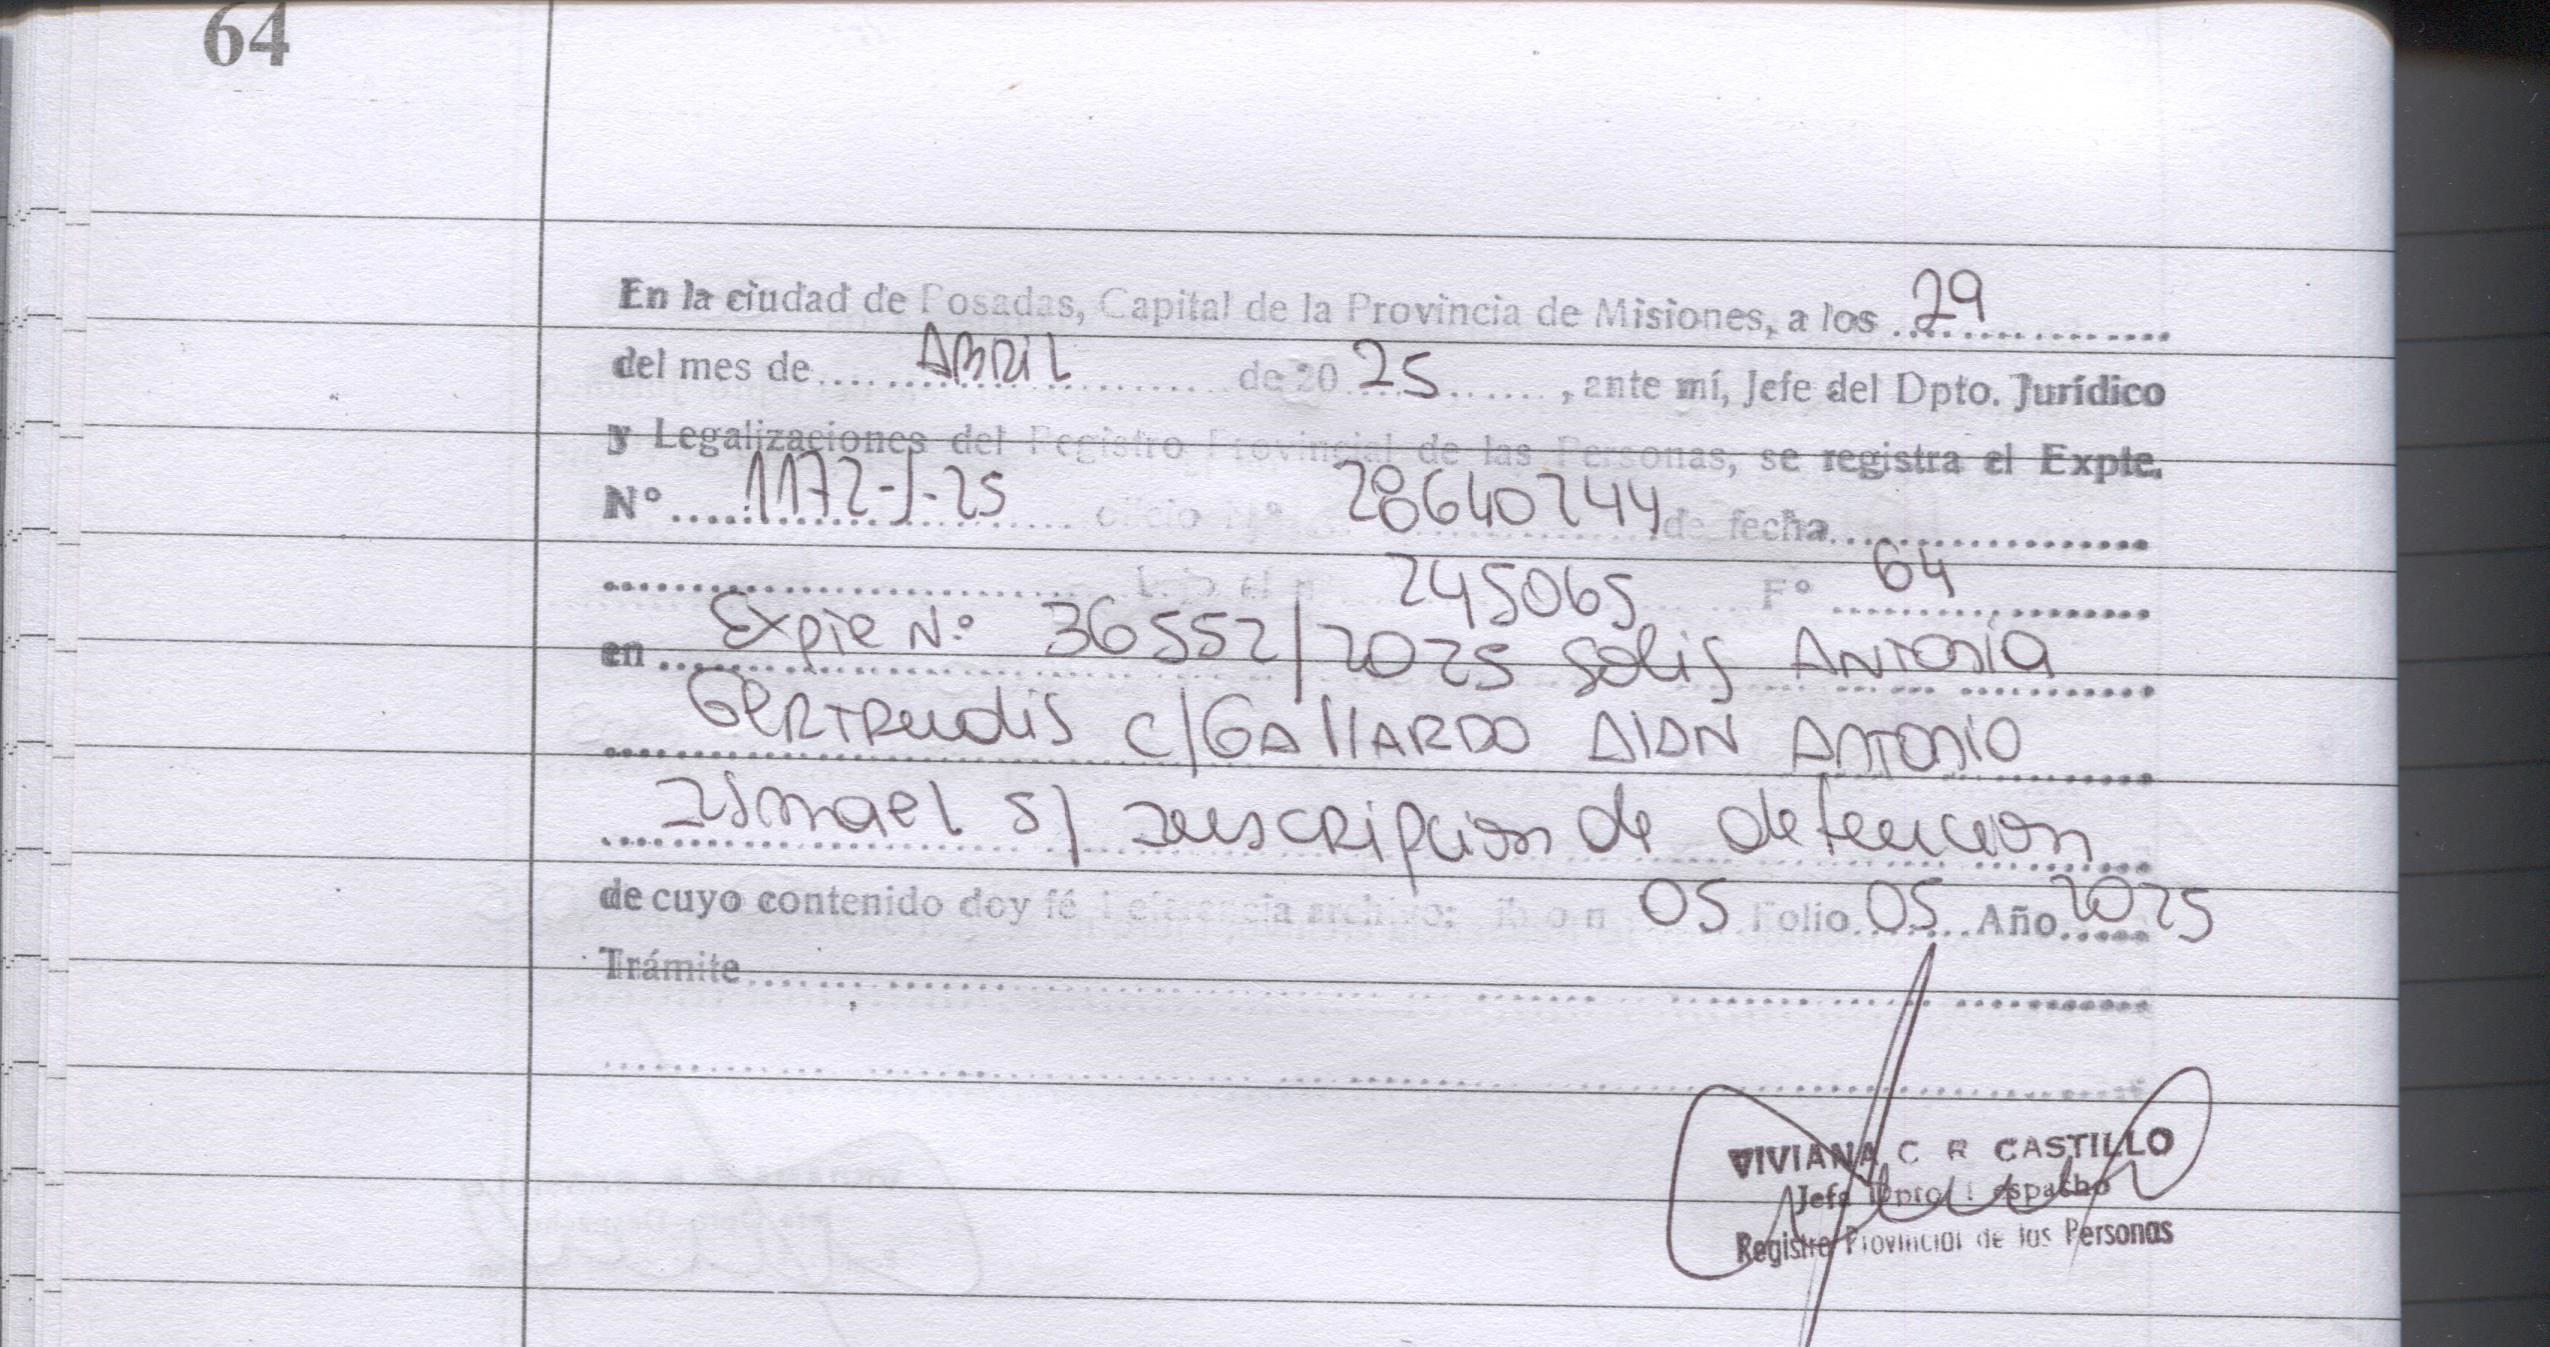 64
En la ciudad de Posadas, Capital de la Provincia de Misiones, a los 29
del mes de ABRIL de 2025, ante mí, Jefe del Dpto. Jurídico
y Legalizaciones del Registro Provincial de las Personas, se registra el Expte.
Nº 1172-J-25 oficio Nº 28640244 de fecha
bajo el n 245065 Fº 64
en Expte N.º 36552/2025 Solis ANTONIA
GERTRUDIS c/GALLARDO ANTONIO
Ismael S/ de
de cuyo contenido doy fé referencia archivo: 05 Folio 05 Año 2025
Trámite
VIVIANA C R CASTILLO
Jefe Dpto Despacho
Registro Provincial de las Personas